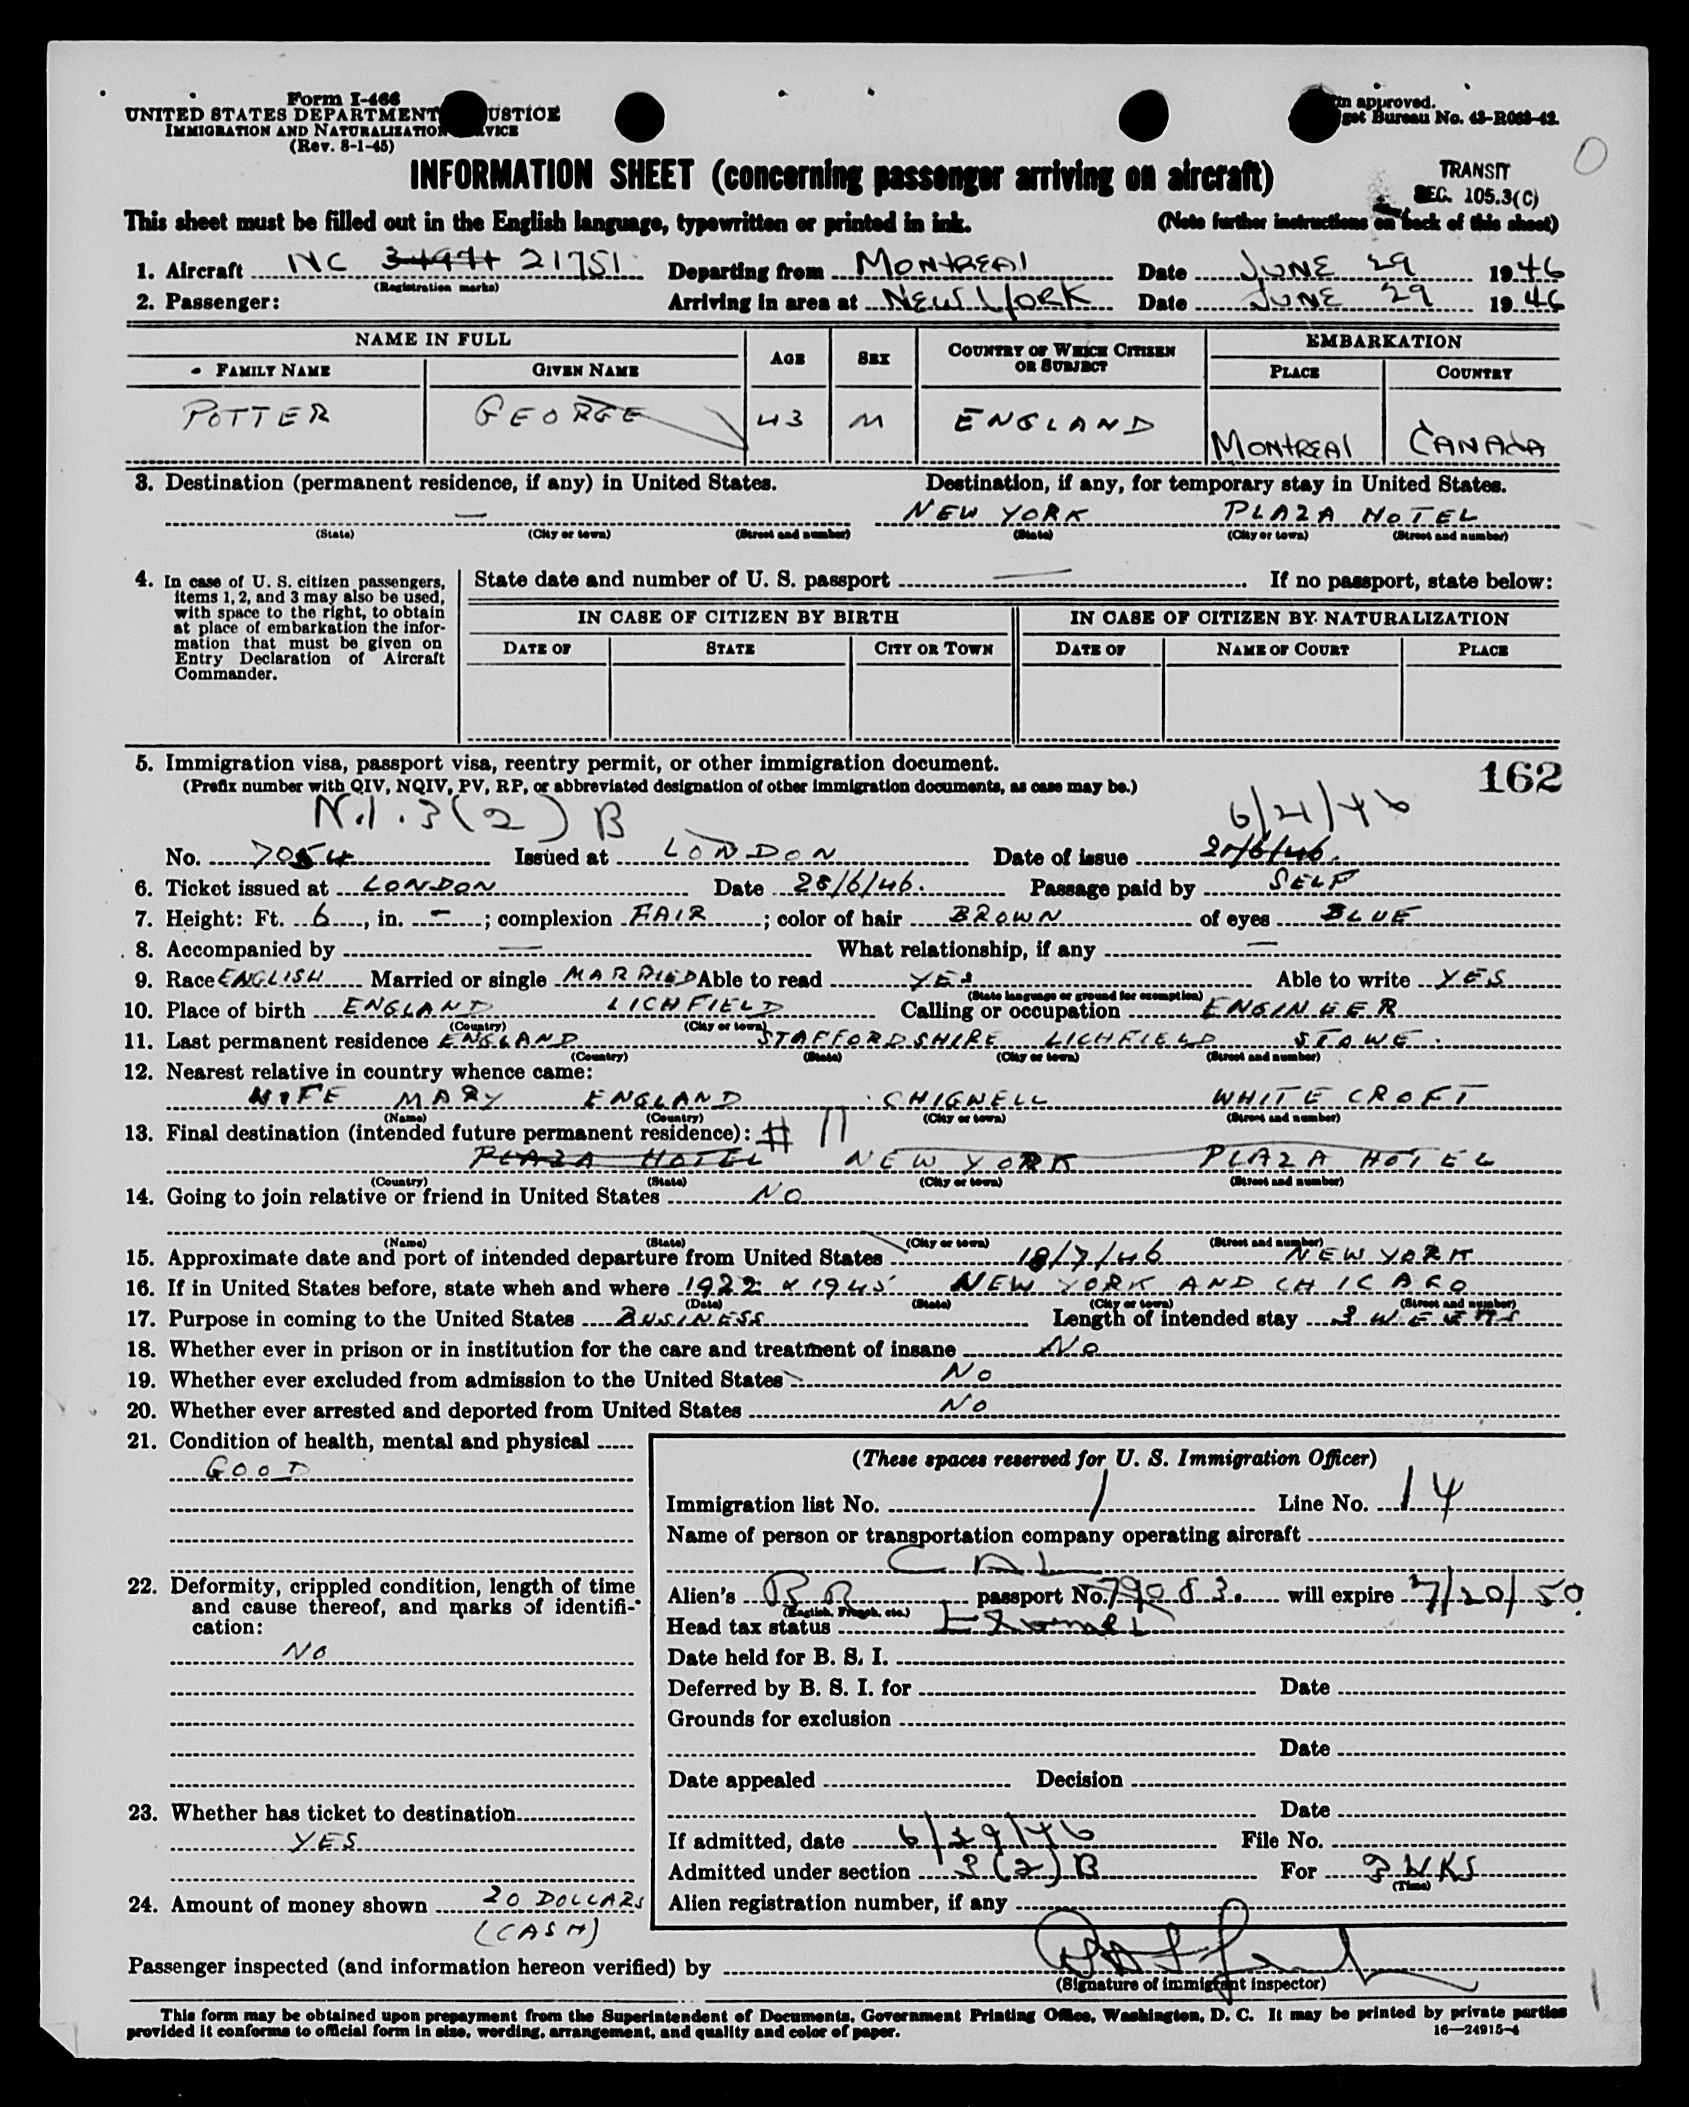 Form I-466
UNITED STATES DEPARTMENT JUSTICE
IMMIGRATION AND NATURALIZATION SERVICE
(Rev. 8-1-45)
approved.
Bureau No. 43-R063-42.
INFORMATION SHEET (concerning passenger arriving on aircraft)
TRANSIT
SEC. 105.3(C)
This sheet must be filled out in the English language, typewritten or printed in ink. (Note further instructions on back of this sheet)
1. Aircraft NC 21751 Departing from MONTREAL Date JUNE 29 1946
(Registration marks)
2. Passenger: Arriving in area at NEW YORK Date JUNE 29 1946
NAME IN FULL AGE SEX COUNTRY OF WHICH CITIZEN OR SUBJECT EMBARKATION
FAMILY NAME GIVEN NAME PLACE COUNTRY
POTTER GEORGE 43 M ENGLAND MONTREAL CANADA
3. Destination (permanent residence, if any) in United States. Destination, if any, for temporary stay in United States.
— NEW YORK PLAZA HOTEL
(State) (City or town) (Street and number) (State) (City or town) (Street and number)
4. In case of U. S. citizen passengers, items 1, 2, and 3 may also be used, with space to the right, to obtain at place of embarkation the information that must be given on Entry Declaration of Aircraft Commander.
State date and number of U. S. passport — If no passport, state below:
IN CASE OF CITIZEN BY BIRTH IN CASE OF CITIZEN BY NATURALIZATION
DATE OF STATE CITY OR TOWN DATE OF NAME OF COURT PLACE
5. Immigration visa, passport visa, reentry permit, or other immigration document.
(Prefix number with QIV, NQIV, PV, RP, or abbreviated designation of other immigration documents, as case may be.)
162
N.I. 3(2) B 6/21/46
No. 7054 Issued at LONDON Date of issue 21/6/46.
6. Ticket issued at LONDON Date 28/6/46. Passage paid by SELF
7. Height: Ft. 6, in. —; complexion FAIR; color of hair BROWN of eyes BLUE
8. Accompanied by — What relationship, if any —
9. Race ENGLISH Married or single MARRIED Able to read YES Able to write YES
(State language or ground for exemption)
10. Place of birth ENGLAND LICHFIELD Calling or occupation ENGINEER
(Country) (City or town)
11. Last permanent residence ENGLAND STAFFORDSHIRE LICHFIELD STOWE.
(Country) (State) (City or town) (Street and number)
12. Nearest relative in country whence came:
WIFE MARY ENGLAND CHIGWELL WHITE CROFT
(Name) (Country) (City or town) (Street and number)
13. Final destination (intended future permanent residence): # 11
PLAZA HOTEL NEW YORK PLAZA HOTEL
(Country) (State) (City or town) (Street and number)
14. Going to join relative or friend in United States NO
(Name) (State) (City or town) (Street and number)
15. Approximate date and port of intended departure from United States 18/7/46 NEW YORK
16. If in United States before, state when and where 1922 & 1945 NEW YORK AND CHICAGO
(Date) (State) (City or town) (Street and number)
17. Purpose in coming to the United States BUSINESS Length of intended stay 3 WEEKS
18. Whether ever in prison or in institution for the care and treatment of insane NO
19. Whether ever excluded from admission to the United States NO
20. Whether ever arrested and deported from United States NO
21. Condition of health, mental and physical
GOOD
22. Deformity, crippled condition, length of time and cause thereof, and marks of identification:
NO
23. Whether has ticket to destination
YES
24. Amount of money shown 20 DOLLARS
(CASH)
(These spaces reserved for U. S. Immigration Officer)
Immigration list No. 1 Line No. 14
Name of person or transportation company operating aircraft
CAL
Alien's BR passport No. 79083. will expire 7/20/50.
(English, French, etc.)
Head tax status Exempt
Date held for B. S. I.
Deferred by B. S. I. for Date
Grounds for exclusion
Date
Date appealed Decision
Date
If admitted, date 6/29/46 File No.
Admitted under section 3(2)B For 3 WKS
(Time)
Alien registration number, if any
Passenger inspected (and information hereon verified) by
(Signature of immigrant inspector)
This form may be obtained upon prepayment from the Superintendent of Documents, Government Printing Office, Washington, D. C. It may be printed by private parties
provided it conforms to official form in size, wording, arrangement, and quality and color of paper.
16—24915-4